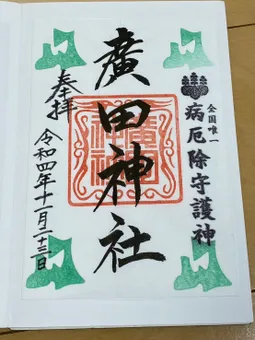 全国唯一
病厄除守護神
廣田神社
奉拝
令和四年十一月二十三日